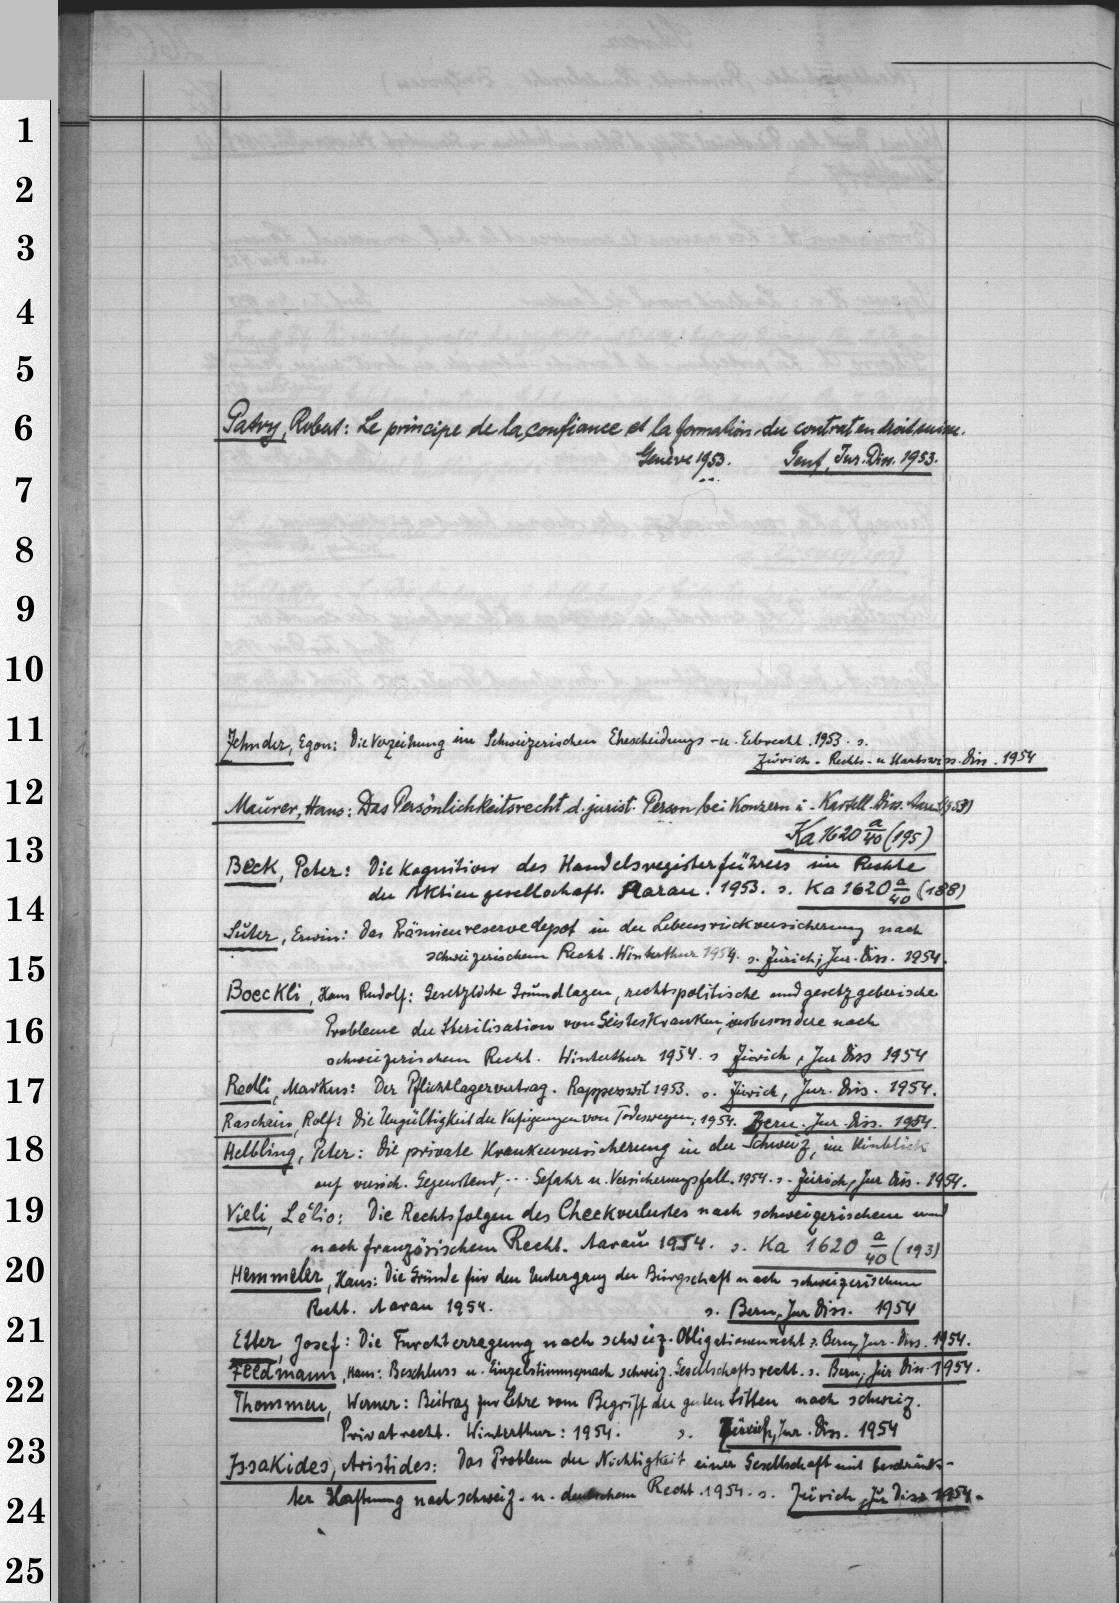 1
2
3
4
5
6
Patry, Robert: Le principe de la confiance et la formation du contrat en droit suisse.
Genève 1953. Genf, Jur. Diss. 1953.
7
8
9
10
11
Zehnder, Egon: Die Verzeihung im Schweizerischen Ehescheidungs- u. Erbrecht. 1953. s.
Zürich. Rechts- u Staatswiss. Diss. 1954
12
Maurer, Hans: Das Persönlichkeitsrecht d. jurist. Person bei Konzern u. Kartell. Diss. 1953)
Ka 1620 a/40 (195)
13
Beck, Peter: Die Kognition des Handelsregisterführers im Rechte
der Aktiengesellschaft. Aarau. 1953. s. Ka 1620 a/40 (188)
14
Suter, Erwin: Das Prämienreservedepot in der Lebensrückversicherung nach
schweizerischem Recht. Winterthur 1954. s. Zürich, Jur. Diss. 1954.
15
Boeckli, Hans Rudolf: Gesetzliche Grundlagen, rechtspolitische und gesetzgeberische
16
Probleme der Sterilisation von Geisteskranken, insbesondere nach
schweizerischem Recht. Winterthur 1954. s Zürich, Jur Diss 1954
17
Redli, Markus: Der Pflichtlagervertrag. Rapperswil 1953. s. Zürich, Jur. Diss. 1954.
Raschein, Rolf: Die Ungültigkeit der Verfügungen von Todeswegen. 1954. Bern. Jur. Diss. 1954.
18
Helbling, Peter: Die private Krankenversicherung in der Schweiz, im Hinblick
auf versich. Gegenstand, ... Gefahr u. Versicherungsfall. 1954. s. Zürich, Jur Diss. 1954.
19
Vieli, Lélio: Die Rechtsfolgen des Checkverlustes nach schweizerischem und
nach französischem Recht. Aarau 1954. s. Ka 1620 a/40 (193)
20
Hemmeler, Hans: Die Gründe für den Untergang der Bürgschaft nach schweizerischem
Recht. Aarau 1954. s. Bern, Jur Diss. 1954
21
Etter, Josef: Die Furchterregung nach schweiz. Obligationenrecht s. Bern, Jur. Diss. 1954.
Feldmann, Hans: Beschluss u. Einzelstimme nach schweiz. Gesellschaftsrecht. s. Bern, Jur Diss 1954.
22
Thommen, Werner: Beitrag zur Lehre vom Begriff der guten Sitten nach schweiz.
Privatrecht. Winterthur: 1954. s. Zürich, Jur. Diss. 1954
23
Issakides, Aristides: Das Problem der Nichtigkeit einer Gesellschaft mit beschränk-
24
ter Haftung nach schweiz. u. deutschem Recht. 1954. s. Zürich, Ju Diss 1954.
25